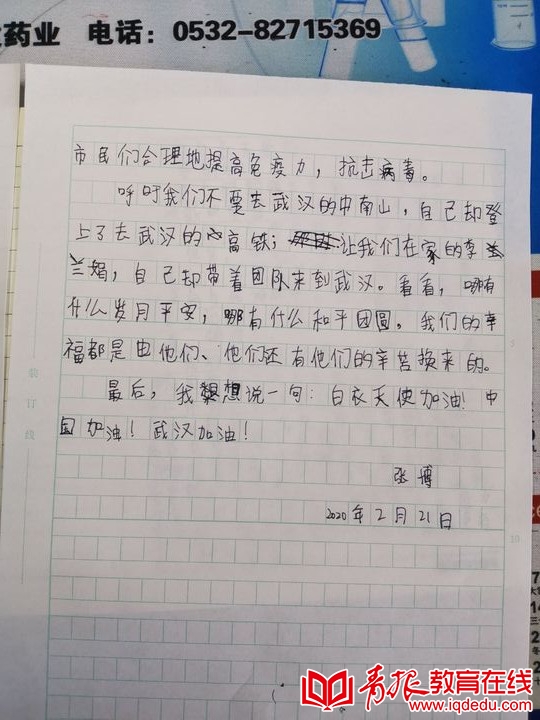 药业 电话：0532-82715369
市民们合理地提高免疫力，抗击病毒。
呼吁我们不要去武汉的中南山，自己却登
上了去武汉的高铁；让我们在家的李
兰娟，自己却带着团队来到武汉。看看，哪有
什么岁月平安，哪有什么和平团圆。我们的幸
福都是由他们、他们还有他们的辛苦换来的。
最后，我想说一句：白衣天使加油！中
国加油！武汉加油！
张博
2020年2月21日
装订线
5
10
青报教育在线
www.iqdedu.com